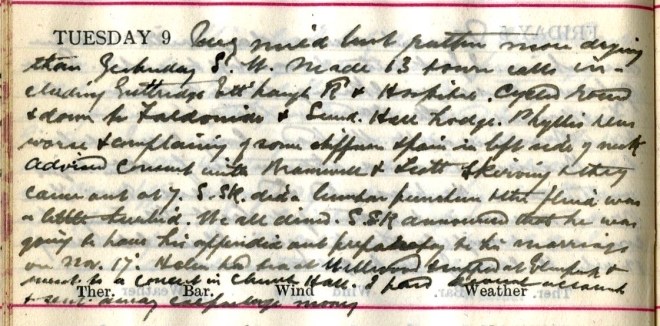 TUESDAY 9 Very mild but rather more drying
than Yesterday S. W. Made 13 town calls in-
cluding Guttridge Ett Rd & Hospital. Cycled round
& down to & Sund. Hall Lodge. Phyllis was
worse & complaining of some stiffness & pain in left side of neck
Advised consult with Bramwell & Scott Skirving & they
came out at 7. S.SK. did a lumbar puncture & the fluid was
a little turbid. We all dined. S.SK announced that he was
going to have his appendix out preparatory to his marriage
on Nov. 17. Helen had tea at Wellwood &
went to a concert in Church Hall. I paid account
Ther. Bar. Wind Weather
& sent away money
FRIDAY